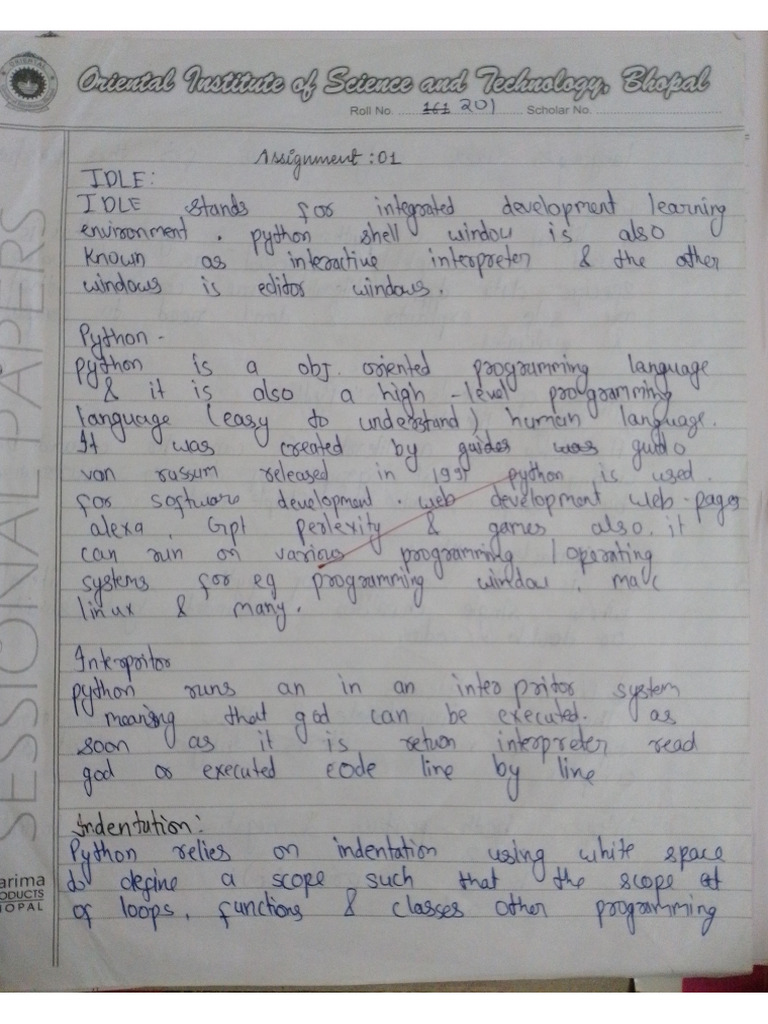 Oriental Institute of Science and Technology, Bhopal
Roll No. 161 201 Scholar No.
Assignment : 01
IDLE :
IDLE stands for integrated development learning
environment . python shell window is also
known as interactive interpreter & the other
windows is editor windows.
Python -
python is a obj. oriented programming language
& it is also a high - level programming
language (easy to understand) human language.
It was created by guides was guido
van russum released in 1991 python is used
for software development . web development web-pages
alexa , Gpt perlexity & games also. it
can run on various programming / operating
systems for eg programming window , mac
linux & many.
Interpritor
python runs an in an interpritor system
meaning that god can be executed. as
soon as it is retuon interpreter read
god or executed code line by line
Indentation :
Python relies on indentation using white space
to define a scope such that the scope
of loops, functions & classes other programming
SESSIONAL PAPERS
arima
ODUCTS
HOPAL